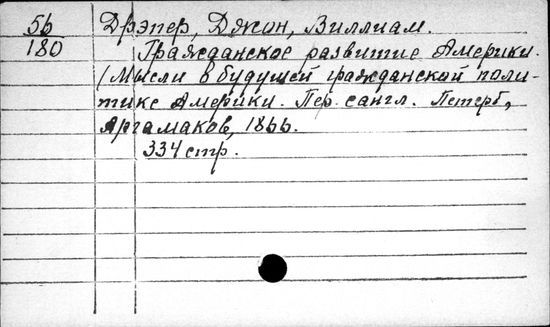 56 Дрэпер, Джон, Виллиам.
180 Гражданское развитие Америки.
(Мысли о будущей гражданской поли-
тике Америки. Пер. с англ. Петерб.,
Аргамаков, 1866.
334 стр.